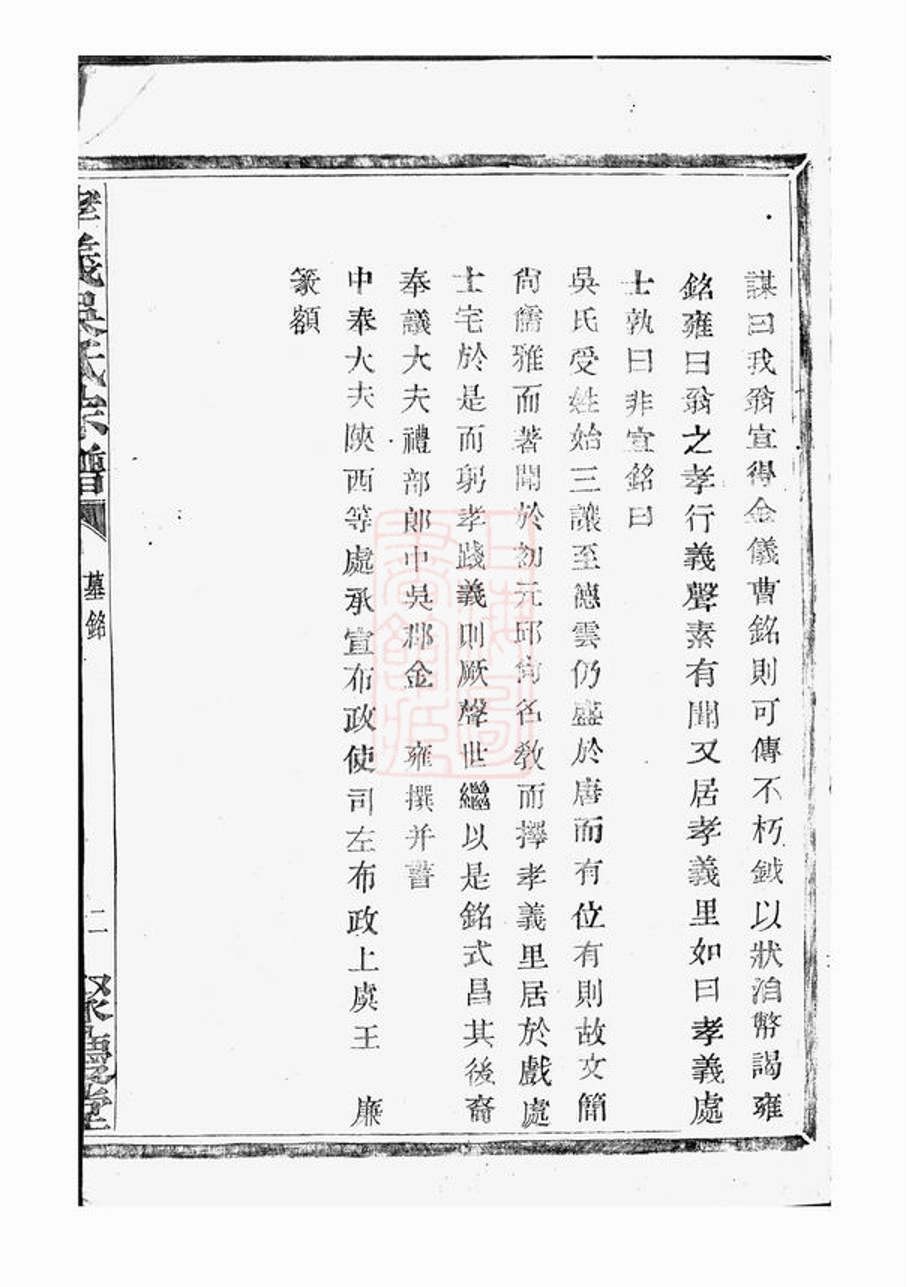 謀曰我翁宜得金儀曹銘則可傳不朽鉞以狀洎幣謁雍
銘雍曰翁之孝行義聲素有聞又居孝義里如曰孝義處
士孰曰非宜銘曰
吳氏受姓始三讓至德雲仍盛於唐而有位有則故文簡
尙儒雅而著聞於初元邱向名敎而擇孝義里居於戲處
士宅於是而躬孝踐義則厥聲世繼以是銘式昌其後裔
奉議大夫禮部郎中吳郡金 雍撰并書
中奉大夫陝西等處承宣布政使司左布政上虞王 廉
篆額
孝義吳氏宗譜
墓銘
二
聚慶堂
上海圖書館藏